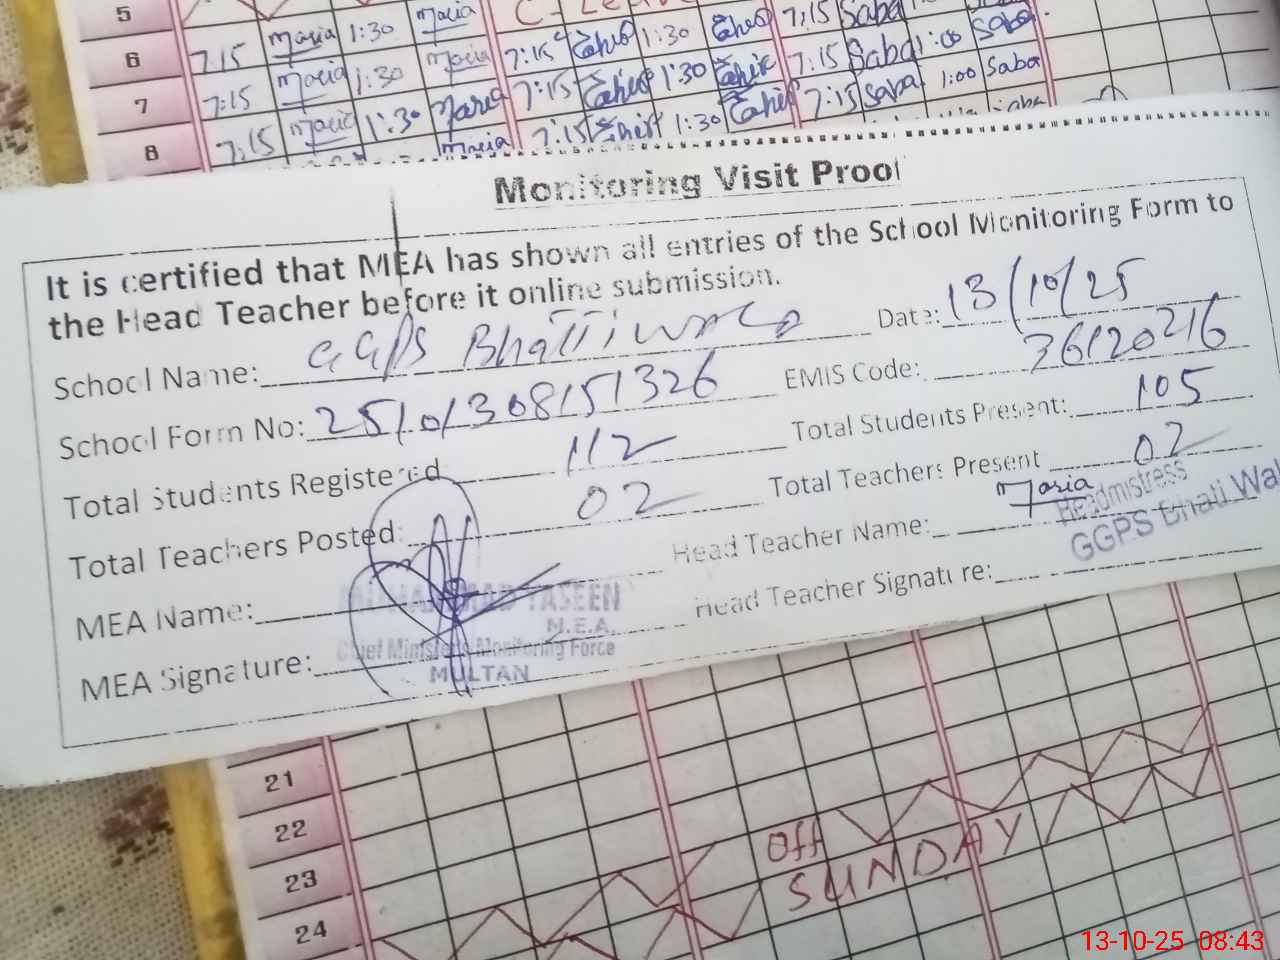 5
6 7:15 Maria 1:30 Maria 7:15 1:30 7:15 Saba 1:00 Saba
7 7:15 Maria 1:30 Maria 7:15 1:30 7:15 Saba 1:00 Saba
8 7:15 Maria 1:30 Maria 7:15 1:30 7:15 Sara 1:00 Saba
Monitoring Visit Proof
It is certified that MEA has shown all entries of the School Monitoring Form to
the Head Teacher before it online submission.
School Name: GGPS Bhattiwala Date: 13/10/25
School Form No: EMIS Code: 36120216
Total Students Registered 112 Total Students Present: 105
Total Teachers Posted: 02 Total Teachers Present 02
MEA Name: Head Teacher Name: Maria
Headmistress
GGPS Bhati Wal
MUHAMMAD YASEEN
M.E.A.
MEA Signature: Head Teacher Signature:
Chief Minister's Monitoring Force
MULTAN
21
22
23 Off
24 SUNDAY
13-10-25 08:43